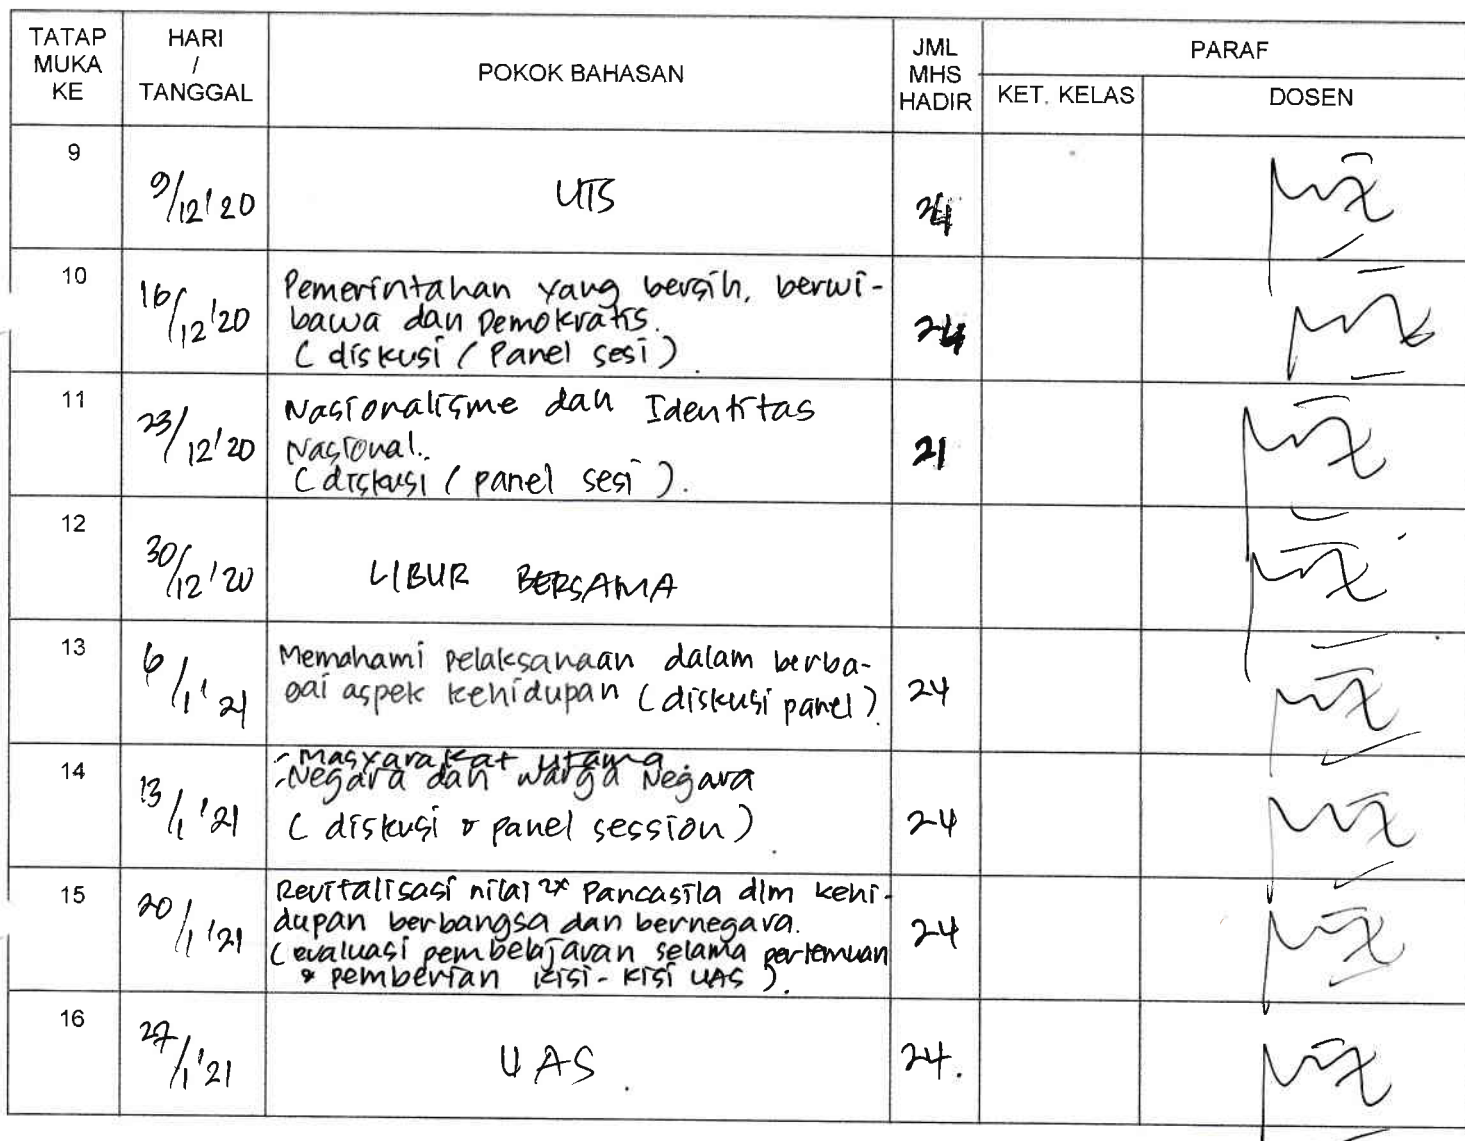 TATAP MUKA KE
HARI / TANGGAL
POKOK BAHASAN
JML MHS HADIR
PARAF
KET. KELAS
DOSEN
9
9/12'20
UTS
24
10
16/12'20
Pemerintahan yang bersih, berwi-
bawa dan Demokratis.
(diskusi / Panel sesi).
24
11
23/12'20
Nasionalisme dan Identitas
Nasional..
(diskusi / panel sesi).
21
12
30/12'20
LIBUR BERSAMA
13
6/1'21
Memahami pelaksanaan dalam berba-
gai aspek kehidupan (diskusi panel).
24
14
13/1'21
- Masyarakat utama.
- Negara dan warga Negara
(diskusi & panel session).
24
15
20/1'21
Revitalisasi nilai 2x Pancasila dlm kehi-
dupan berbangsa dan bernegara.
(evaluasi pembelajaran selama pertemuan
& pemberian kisi-kisi UAS).
24
16
27/1'21
UAS.
24.